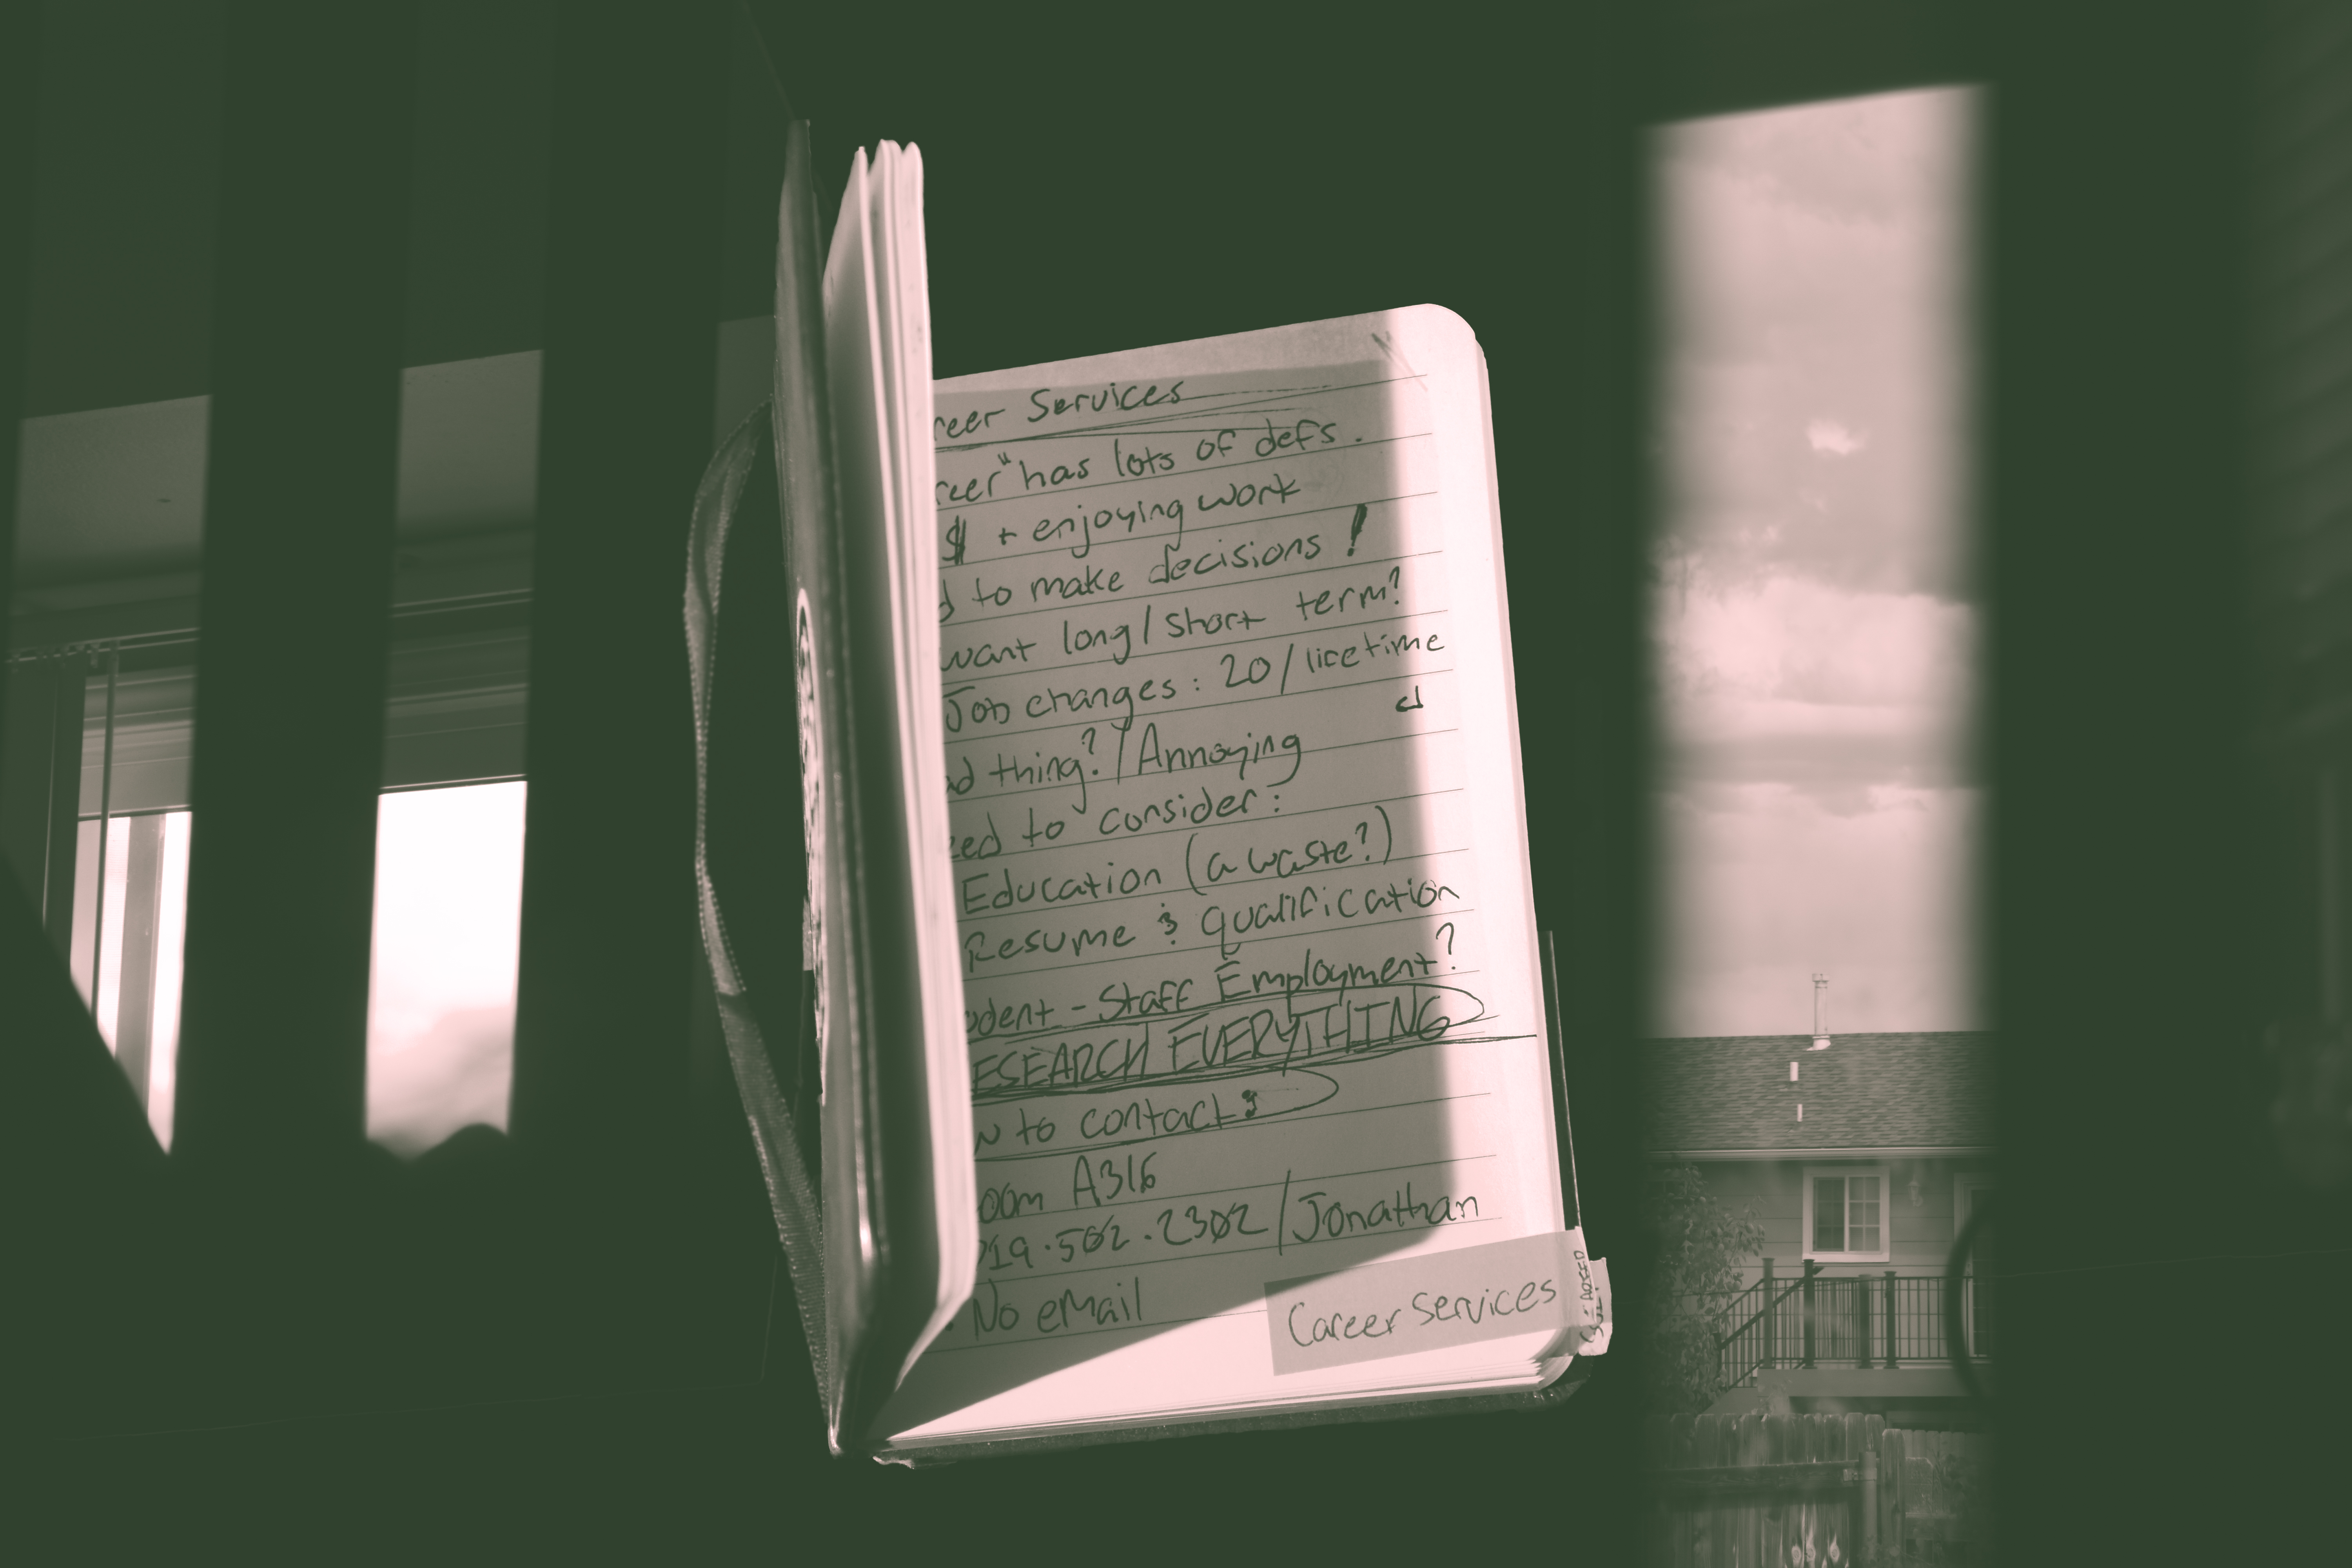 reer Services
reer" has lots of defs.
$ + enjoying work
d to make decisions!
want long/short term?
Job changes: 20/licetime
ad thing?/Annoying
eed to consider:
Education (a waste?)
Resume & qualification
udent - Staff Employment?
ESEARCH EVERYTHING
w to contact:
oom A316
719.502.2302/Jonathan
. No email
Career Services